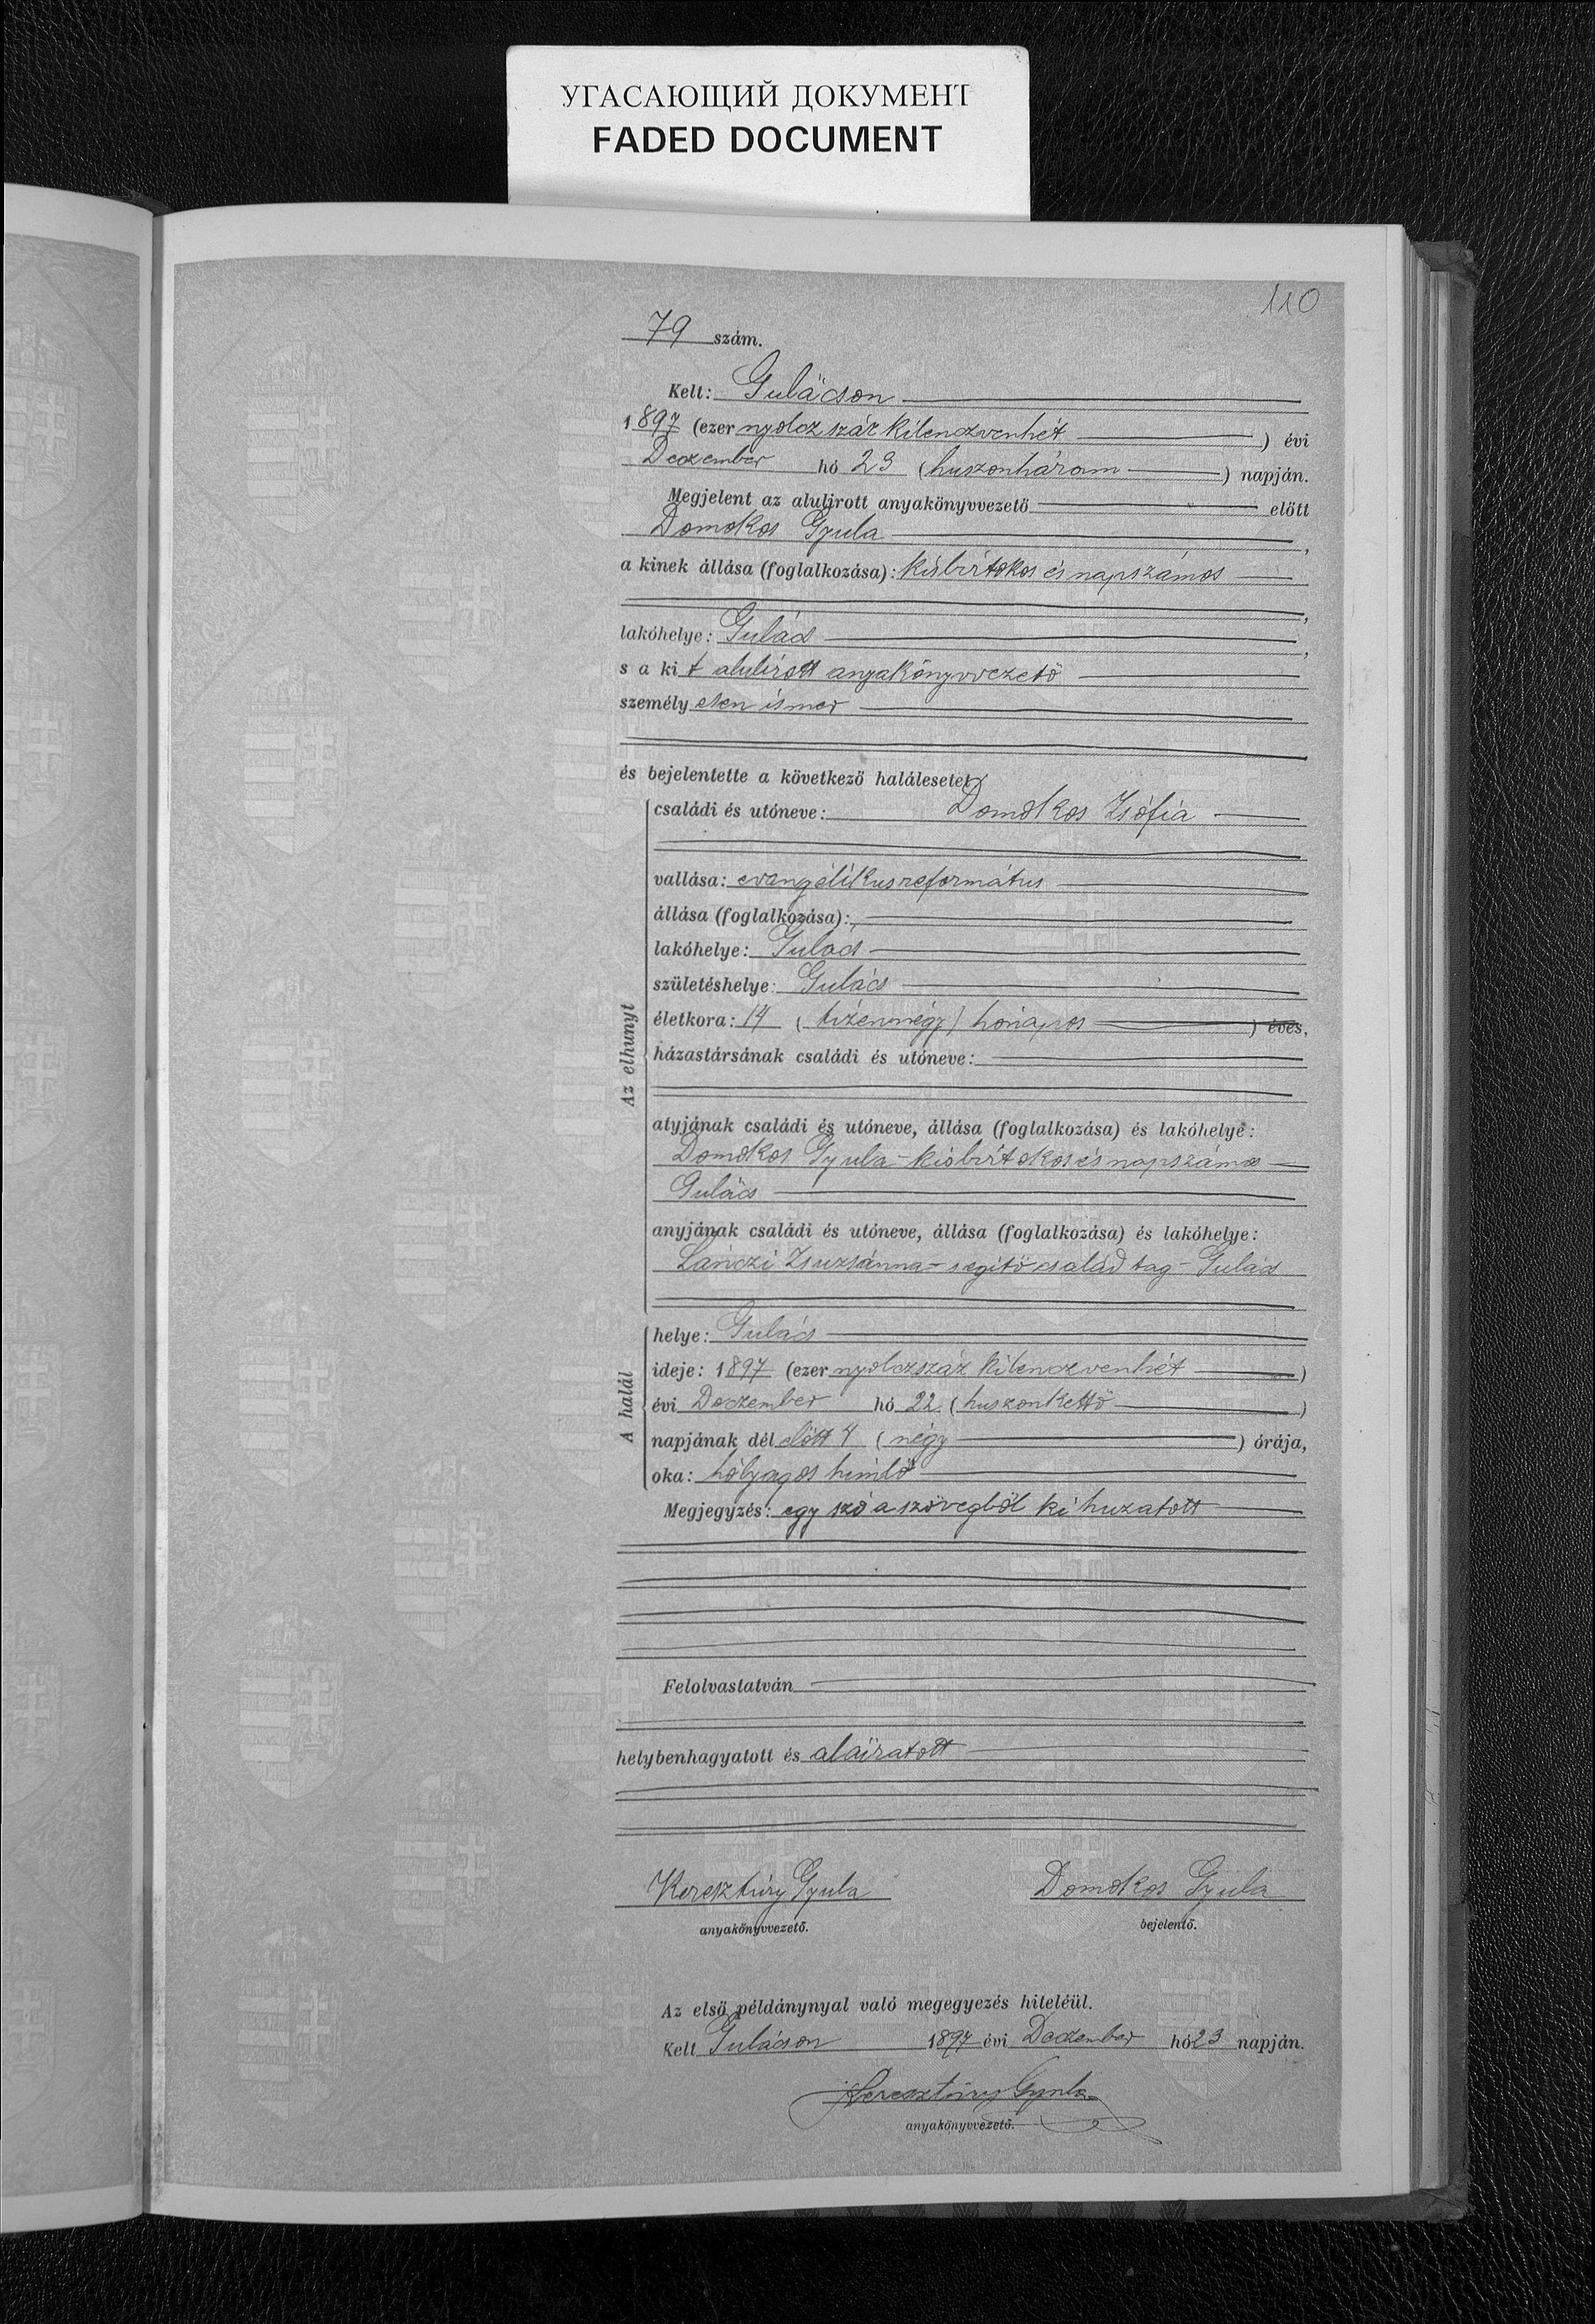 УГАСАЮЩИЙ ДОКУМЕНТ
FADED DOCUMENT
110
79 szám.
Kelt: Gulácson
1897 (ezer nyolcz száz kilenczvenhét ) évi
Deczember hó 23 (huszonhárom ) napján.
Megjelent az alulirott anyakönyvvezető előtt
Domokos Gyula ,
a kinek állása (foglalkozása): kisbirtokos és napszámos
,
lakóhelye: Gulács
,
s a kit alulirott anyakönyvvezető
személyesen ismer
és bejelentette a következő halálesetet:
Az elhunyt
családi és utóneve: Domokos Zsófia
vallása: evangélikus református
állása (foglalkozása):
lakóhelye: Gulács
születéshelye: Gulács
életkora: 14 ( tizennégy) hónapos ) éves,
házastársának családi és utóneve:
atyjának családi és utóneve, állása (foglalkozása) és lakóhelye:
Domokos Gyula - kisbirtokos és napszámos
Gulács
anyjának családi és utóneve, állása (foglalkozása) és lakóhelye:
Lánczi Zsuzsánna - segitö család tag - Gulács
A halál
helye: Gulács
ideje: 1897 (ezer nyolczszáz kilenczvenhét )
évi Deczember hó 22. (huszonkettő )
napjának délelőtt 4 (négy ) órája,
oka: hólyagos himlő
Megjegyzés: egy szó a szövegből ki huzatott
Felolvastatván
helybenhagyatott és aláiratott
Keresztúry Gyula Domokos Gyula
anyakönyvvezető. bejelentő.
Az első példánynyal való megegyezés hiteléül.
Kelt Gulácson 1897 évi Deczember hó 23 napján.
Keresztúry Gyula
anyakönyvvezető.